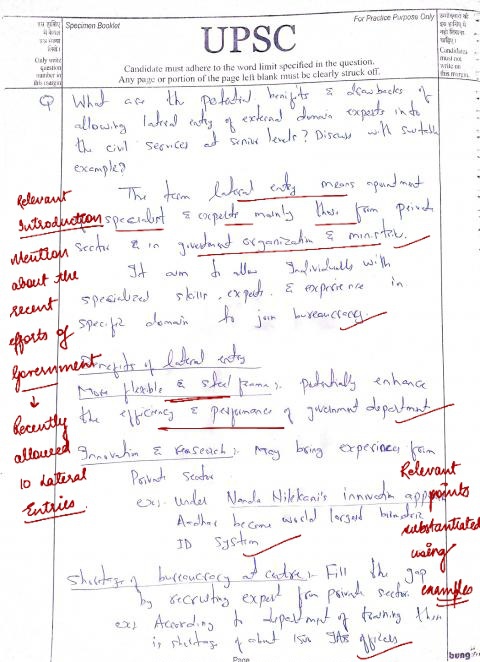 इस हाशिए में केवल प्रश्न संख्या लिखें।
Only write question number in this margin
Specimen Booklet
For Practice Purpose Only
UPSC
Candidate must adhere to the word limit specified in the question.
Any page or portion of the page left blank must be clearly struck off.
उम्मीदवारों को इस हाशिए में नहीं लिखना चाहिए।
Candidates must not write on this margin.
Q What are the potential benefits & drawbacks of
allowing lateral entry of external domain experts into
the civil services at senior levels? Discuss with suitable
example?
The term lateral entry means
specialist & experts mainly those from private
sector & in government organization & ministries.
It aim to allow Individuals with
specialized skills, experts & experience in
specific domain to join bureaucracy.
Benefits of lateral entry
More flexible & steel frame:- potentially enhance
the efficiency & performance of government department.
Innovation & research:- May bring experience from
Private Sector
ex:- Under Nanda Nilekani's innovation
Aadhar become world largest
ID System
Shortage of bureaucracy at centre:- Fill the gap
by recruiting expert from private sector
ex:- According to department of training there
is shortage of about 1500 IAS officers
Relevant
Introduction
Mention
about the
recent
efforts of
Government
↓
Recently
allowed
10 Lateral
Entries.
Relevant
points
substantiated
using
examples
Page
bung